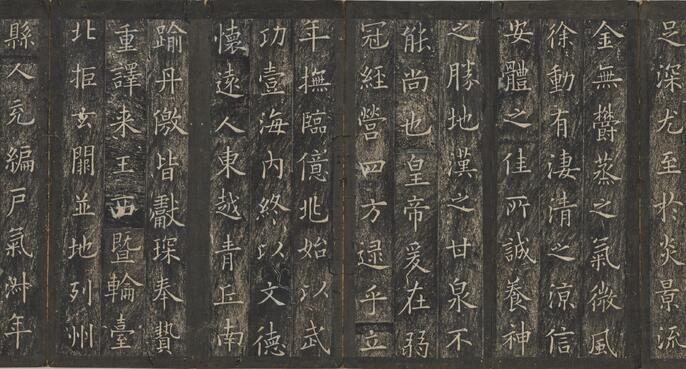 足深尤至於炎景流
金無鬱蒸之氣微風
徐動有淒清之涼信
安體之佳所誠養神
之勝地漢之甘泉不
能尚也皇帝爰在弱
冠經營四方逮乎立
年撫臨億兆始以武
功壹海內終以文德
懷遠人東越青丘南
踰丹徼皆獻琛奉贄
重譯来王西暨輪臺
北拒玄闕並地列州
縣人充編戶氣淑年